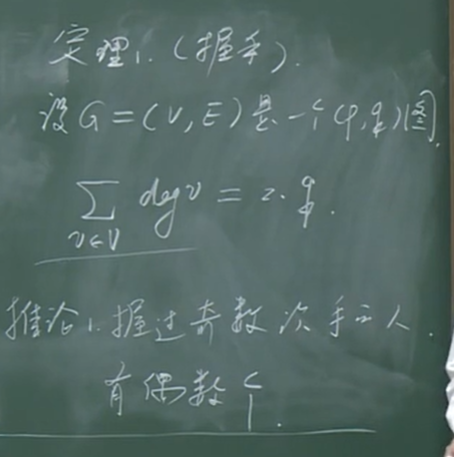 定理1.（握手）.
设G=(V,E)是一个(p,q)图,
∑ deg v = 2·q.
v∈V
推论1.握过奇数次手之人.
有偶数个.